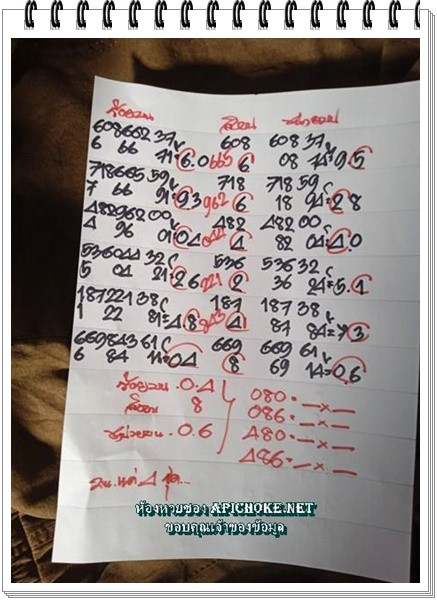 ร้อยบน สิบบน หน่วยบน
608662 37 608 608 37
6 66 71=6.0 665 6 08 74=9.5
718665 59 718 718 59
7 66 91=9.3 962 6 18 94=2.8
482962 00 482 482 00
4 96 01=04 4 82 04=4.0
536044 32 536 536 32
5 04 21=2.6 221 2 36 24=5.1
187221 38 187 187 38
1 22 81=4.8 843 4 87 84=
669843 61 669 669 61
6 84 11=04 8 69 14=0.6
ร้อยบน.0.4
สิบบน 8
หน่วยบน.0.6
080.—x—
086.—x—
480.—x—
486.—x—
4 ชุด...
ห้องหวยซอง APICHOKE.NET
ขอบคุณเจ้าของข้อมูล